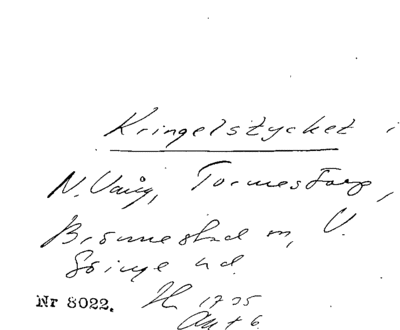 Kringelstycket i
N. Vång, Tormestorp,
Brönnestad sn, V.
Göinge hd.
Nr 8022. 1735